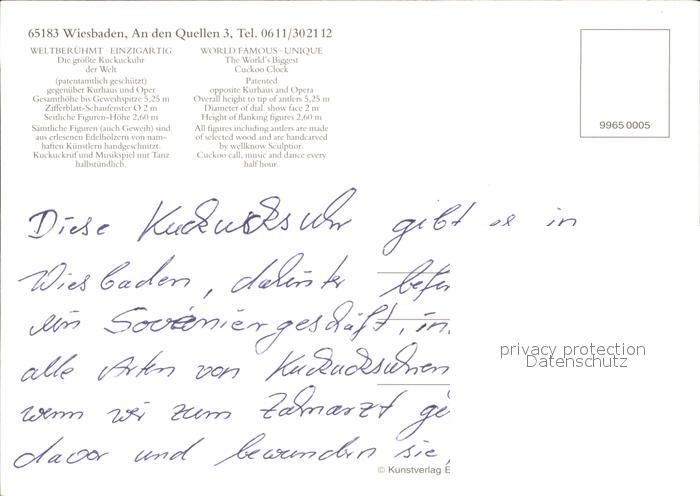 65183 Wiesbaden, An den Quellen 3, Tel. 0611/302112
WELTBERÜHMT - EINZIGARTIG
Die größte Kuckucksuhr
der Welt
(patentamtlich geschützt)
gegenüber Kurhaus und Oper
Gesamthöhe bis Geweihspitze 5,25 m
Zifferblatt-Schaufenster Ø 2 m
Seitliche Figuren-Höhe 2,60 m
Sämtliche Figuren (auch Geweih) sind
aus erlesenen Edelhölzern von nam-
haften Künstlern handgeschnitzt.
Kuckuckruf und Musikspiel mit Tanz
halbstündlich.
WORLD FAMOUS - UNIQUE
The World's Biggest
Cuckoo Clock
Patented
opposite Kurhaus and Opera
Overall height to tip of antlers 5,25 m
Diameter of dial. show face 2 m
Height of flanking figures 2,60 m
All figures including antlers are made
of selected wood and are handcarved
by wellknow Sculptior.
Cuckoo call, music and dance every
half hour.
9965 0005
Diese Kuckucksuhr gibt es in
Wiesbaden, dahinter
ein Souveniergeschäft, in
alle Arten von Kuckucksuhren
wenn wir zum Zahnarzt ge
davor und bewundern sie,
privacy protection
Datenschutz
© Kunstverlag E